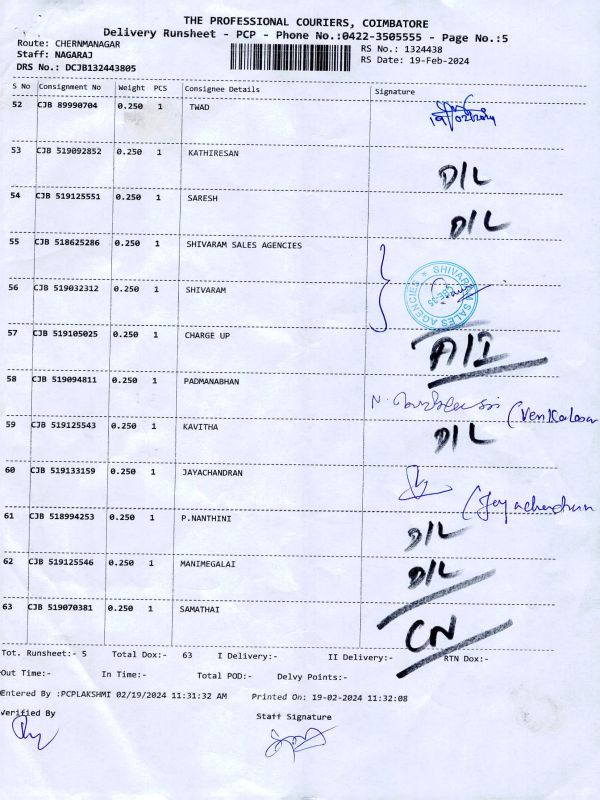 THE PROFESSIONAL COURIERS, COIMBATORE
Delivery Runsheet - PCP - Phone No.:0422-3505555 - Page No.:5
Route: CHERNMANAGAR RS No.: 1324438
Staff: NAGARAJ RS Date: 19-Feb-2024
DRS No.: DCJB132443805
S No Consignment No Weight PCS Consignee Details Signature
52 CJB 89990704 0.250 1 TWAD 19/02/2024
53 CJB 519092852 0.250 1 KATHIRESAN D/L
54 CJB 519125551 0.250 1 SARESH D/L
55 CJB 518625286 0.250 1 SHIVARAM SALES AGENCIES
SHIVARAM SALES AGENCIES
56 CJB 519032312 0.250 1 SHIVARAM
57 CJB 519105025 0.250 1 CHARGE UP A/I
58 CJB 519094811 0.250 1 PADMANABHAN N.
59 CJB 519125543 0.250 1 KAVITHA D/L
60 CJB 519133159 0.250 1 JAYACHANDRAN (Jayachandran
61 CJB 518994253 0.250 1 P.NANTHINI D/L
62 CJB 519125546 0.250 1 MANIMEGALAI D/L
63 CJB 519070381 0.250 1 SAMATHAI CN
Tot. Runsheet:- 5 Total Dox:- 63 I Delivery:- II Delivery:- RTN Dox:-
Out Time:- In Time:- Total POD:- Delvy Points:-
Entered By :PCPLAKSHMI 02/19/2024 11:31:32 AM Printed On: 19-02-2024 11:32:08
Verified By Staff Signature